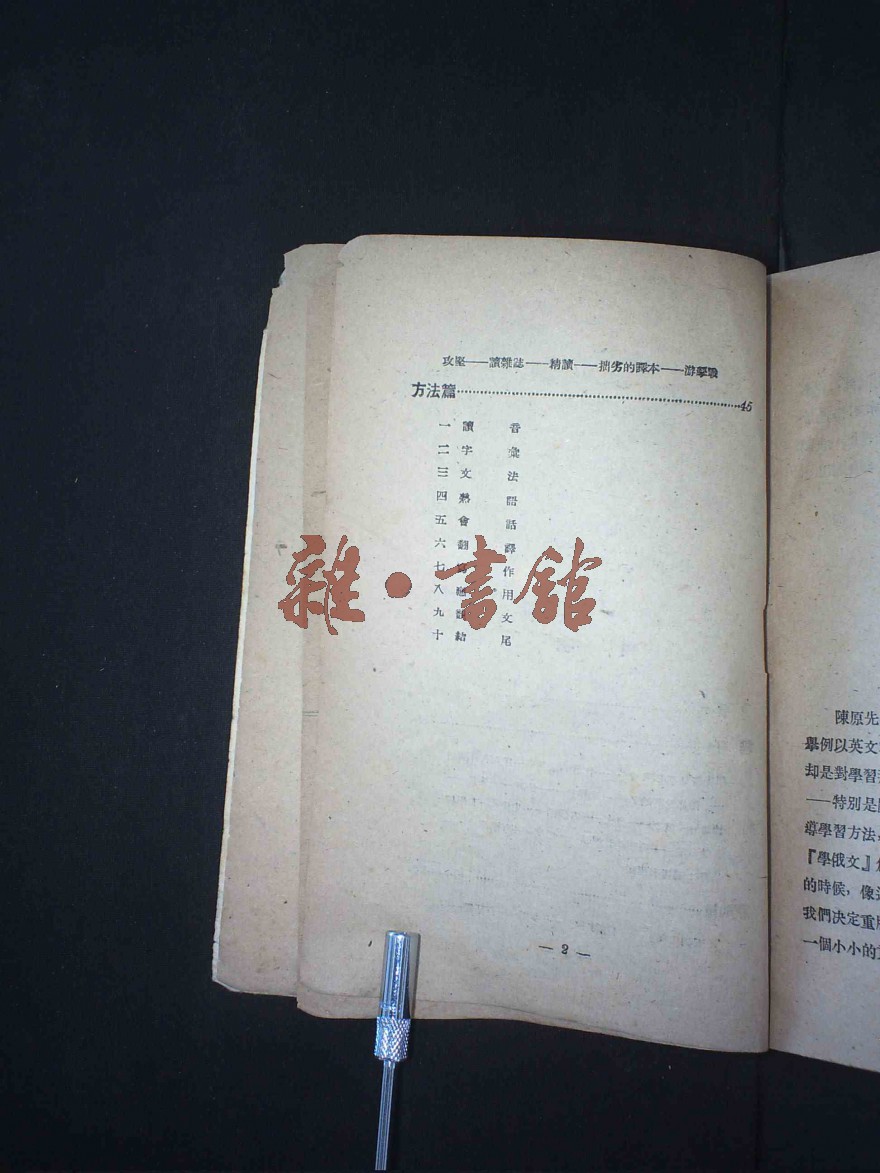 攻堅——讀雜誌——精讀——拙劣的譯本——游擊戰
方法篇 45
一 讀音
二 字彙
三 文法
四 熟語
五 會話
六 翻譯
七 作
八 用
九 文
十 結尾
— 2 —
雜·書館
陳原先
舉例以英文
却是對學習
——特别是
導學習方法
『學俄文』
的時候，像
我們决定重
一個小小的